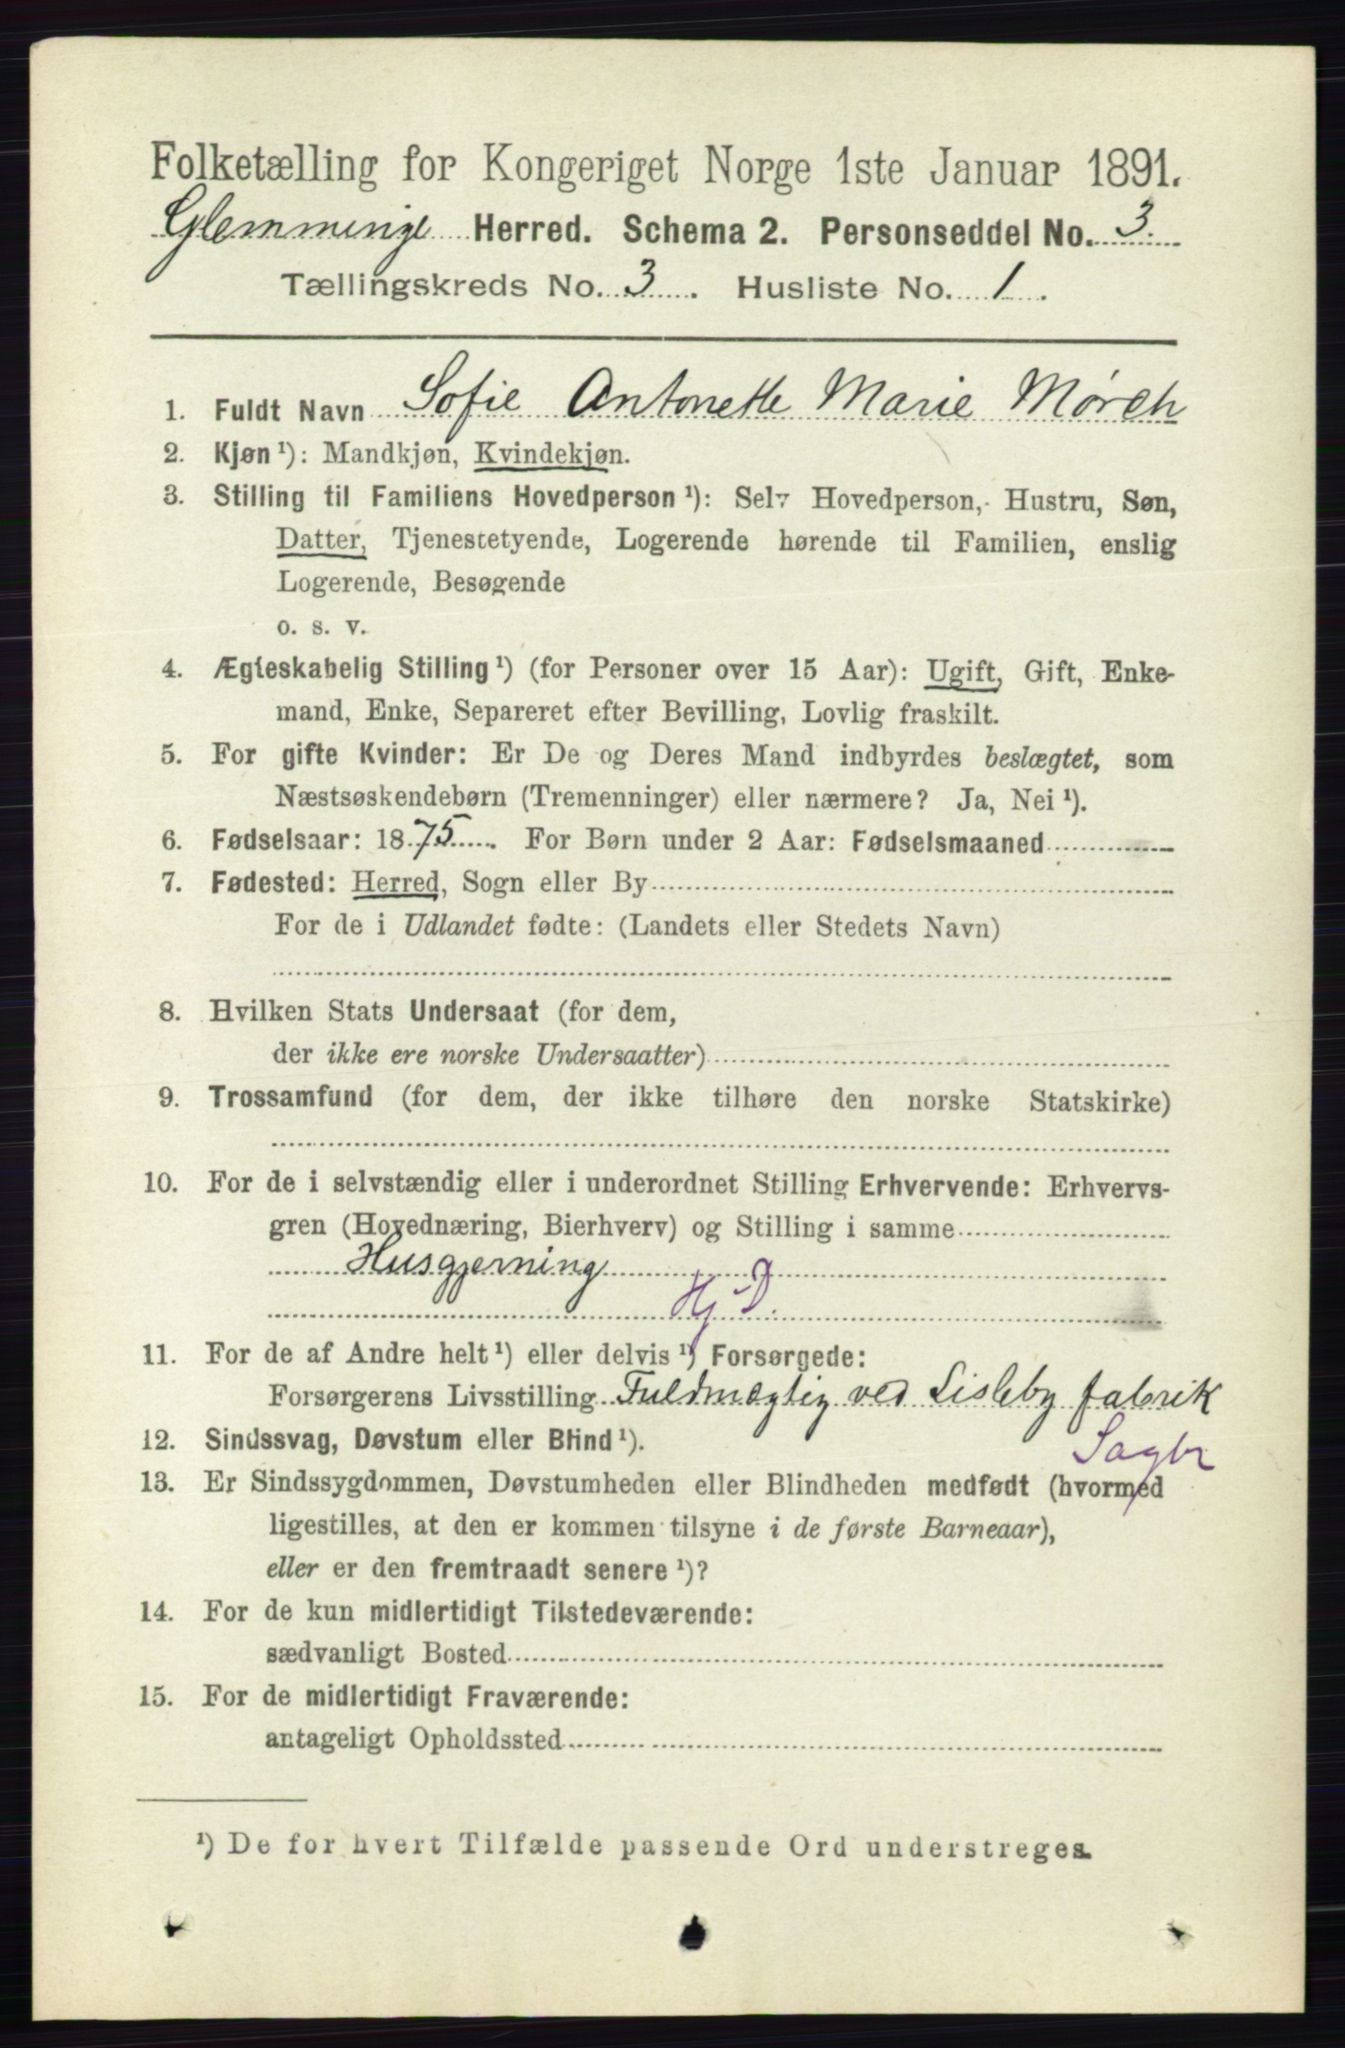 Folketælling for Kongeriget Norge 1ste Januar 1891.
Glemminge Herred. Schema 2. Personseddel No. 3.
Tællingskreds No. 3. Husliste No. 1.
1. Fuldt Navn Sofie Antonette Marie Mørch
2. Kjøn¹): Mandkjøn, Kvindekjøn.
3. Stilling til Familiens Hovedperson¹): Selv Hovedperson, Hustru, Søn,
Datter, Tjenestetyende, Logerende hørende til Familien, enslig
Logerende, Besøgende
o. s. v.
4. Ægteskabelig Stilling¹) (for Personer over 15 Aar): Ugift, Gift, Enke-
mand, Enke, Separeret efter Bevilling, Lovlig fraskilt.
5. For gifte Kvinder: Er De og Deres Mand indbyrdes beslægtet, som
Næstsøskendebørn (Tremenninger) eller nærmere? Ja, Nei¹).
6. Fødselsaar: 1875. For Børn under 2 Aar: Fødselsmaaned
7. Fødested: Herred, Sogn eller By
For de i Udlandet fødte: (Landets eller Stedets Navn)
8. Hvilken Stats Undersaat (for dem,
der ikke ere norske Undersaatter)
9. Trossamfund (for dem, der ikke tilhøre den norske Statskirke)
10. For de i selvstændig eller i underordnet Stilling Erhvervende: Erhvervs-
gren (Hovednæring, Bierhverv) og Stilling i samme
Husgjerning
Hj D.
11. For de af Andre helt¹) eller delvis¹) Forsørgede:
Forsørgerens Livsstilling Fuldmægtig ved Lisleby fabrik
Sagbr
12. Sindssvag, Døvstum eller Blind¹).
13. Er Sindssygdommen, Døvstumheden eller Blindheden medfødt (hvormed
ligestilles, at den er kommen tilsyne i de første Barneaar),
eller er den fremtraadt senere¹)?
14. For de kun midlertidigt Tilstedeværende:
sædvanligt Bosted
15. For de midlertidigt Fraværende:
antageligt Opholdssted
¹) De for hvert Tilfælde passende Ord understreges.